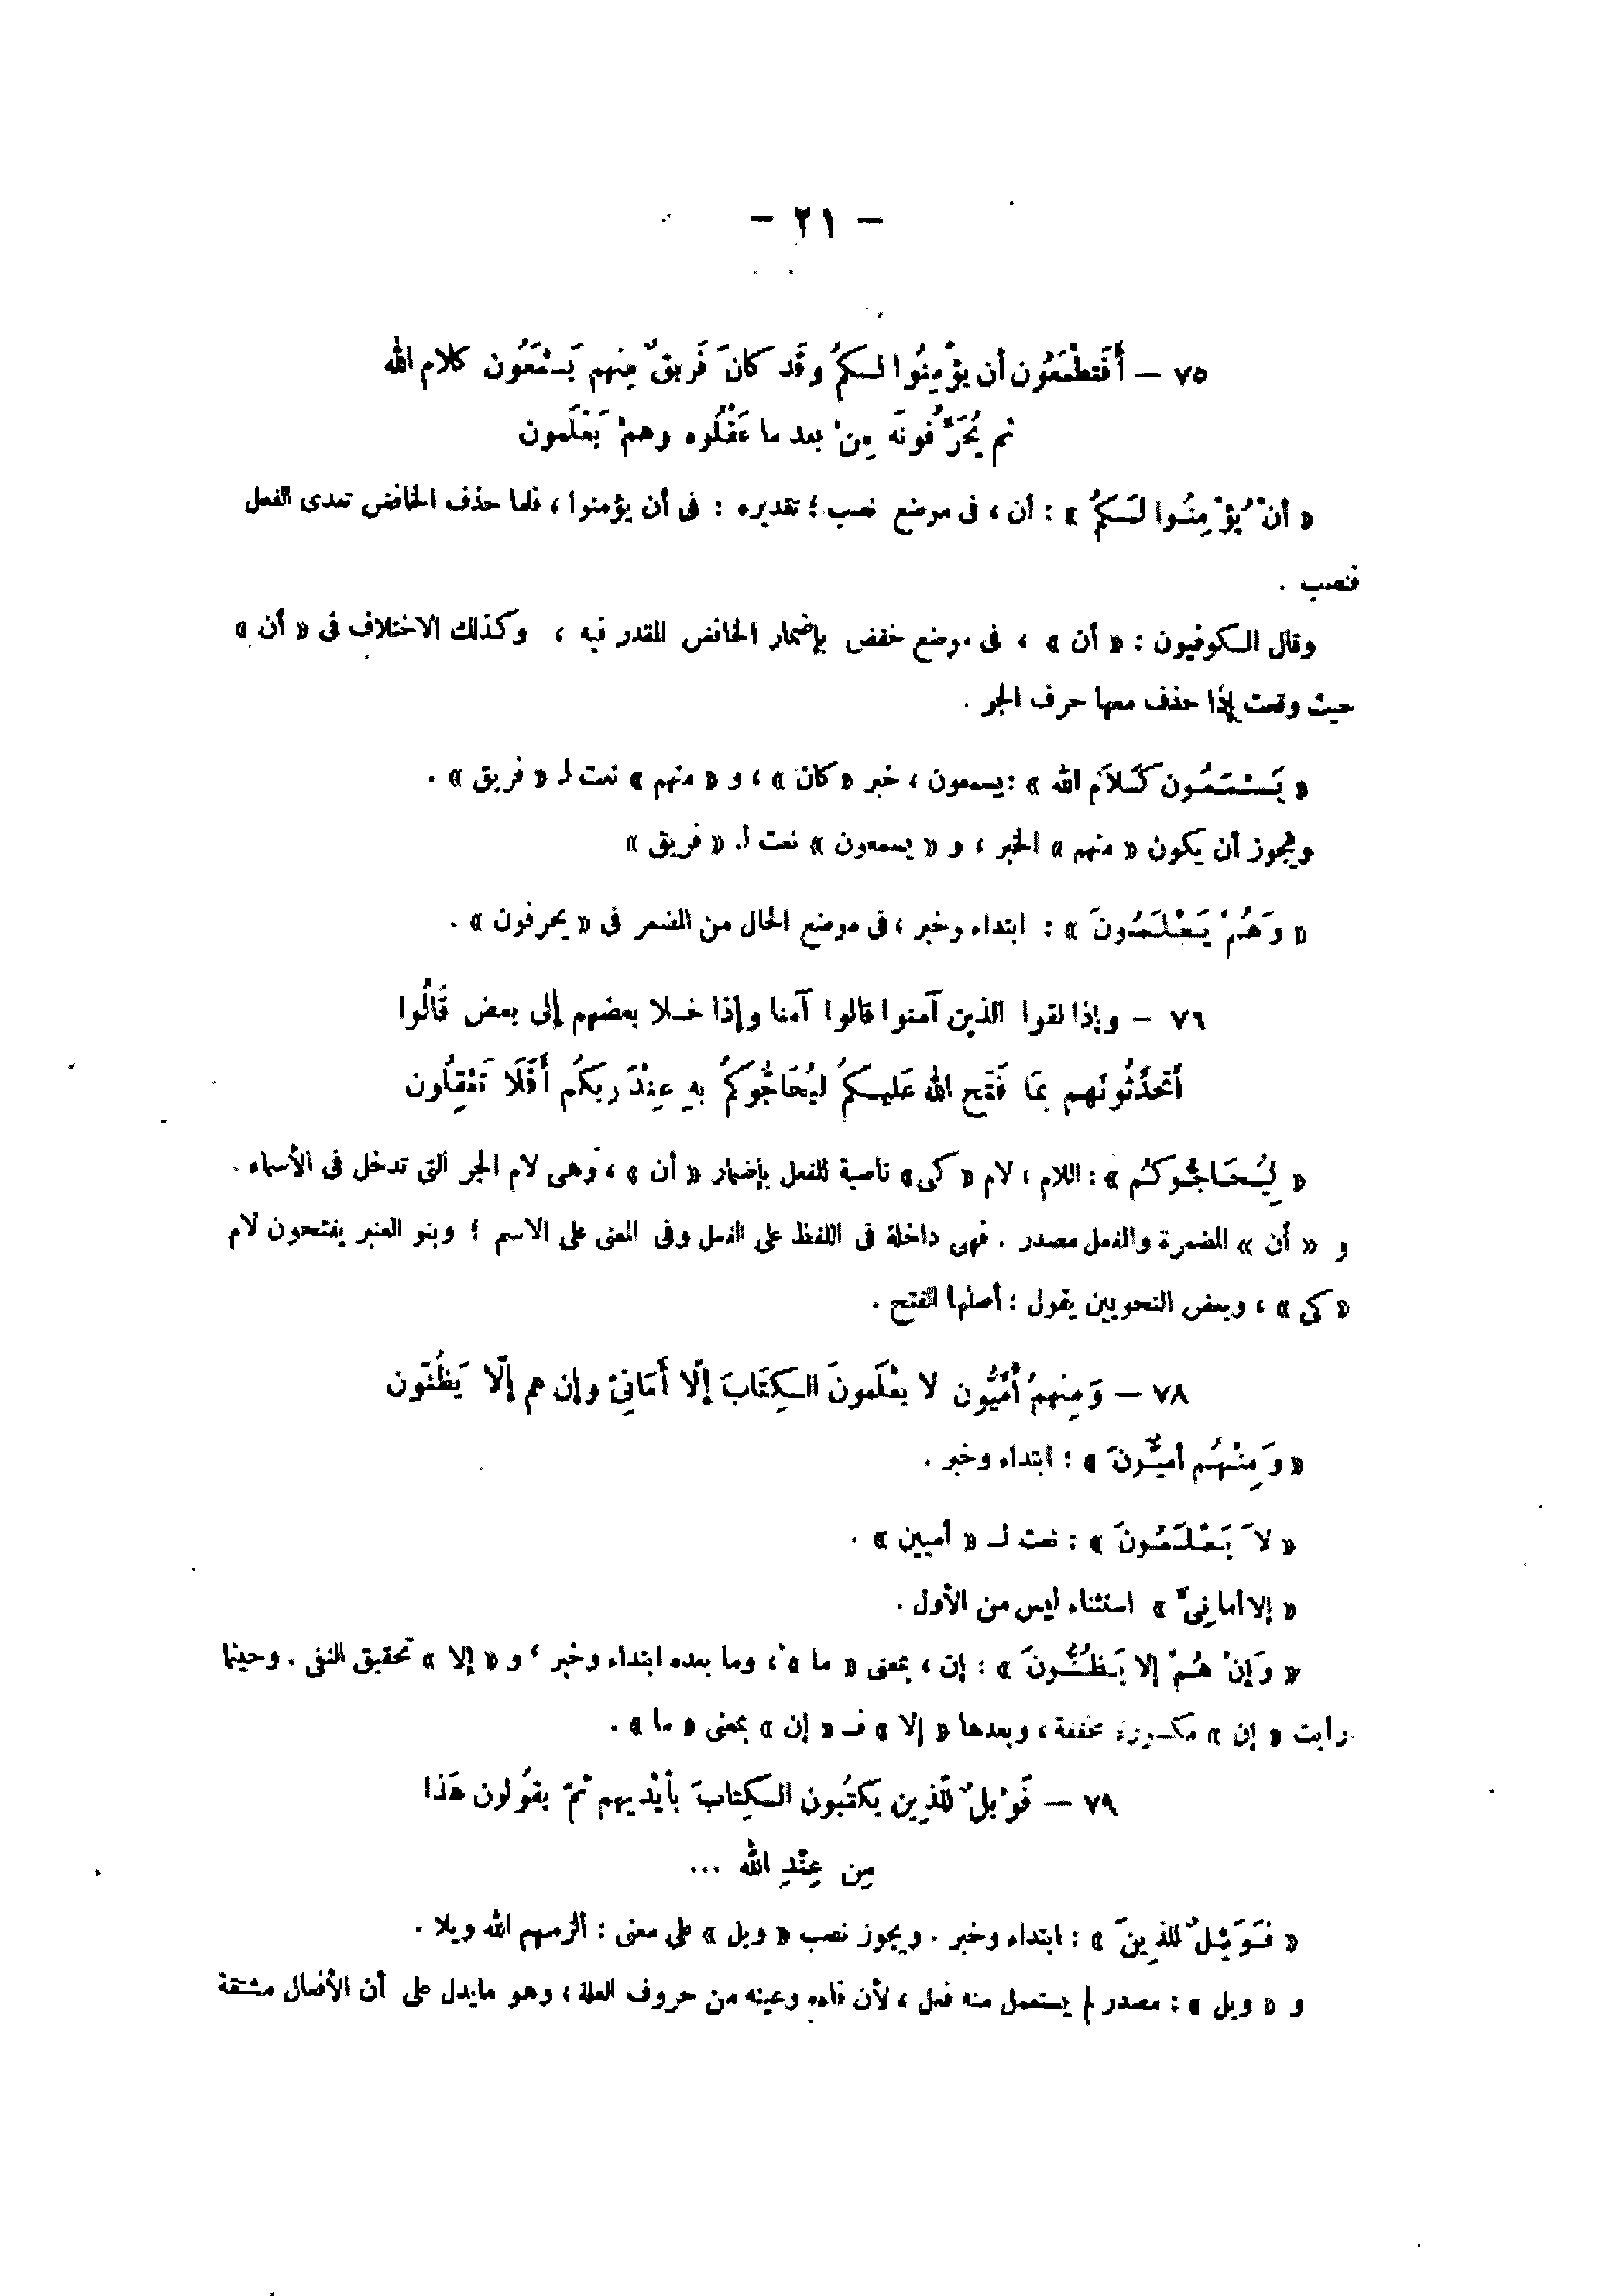 — ٢١ —
٧٥ — أَفَتطْمَعُون أن يؤْمِنُوا لكمُ وقَد كانَ فَريقٌ مِنهم يَسْمَعُون كلام الله
ثم يُحَرِّفُونَه مِنْ بعد ما عَقَلُوه وهمْ يَعْلَمون
« أنْ يُؤْمِنُوا لَكمُ » : أن ، فى موضع نصب ؛ تقديره : فى أن يؤمنوا ، فلما حذف الخافض تعدى الفعل
فنصب .
وقال الكوفيون : « أن » ، فى موضع خفض بإضمار الخافض المقدر فيه ، وكذلك الاختلاف فى « أن »
حيث وقعت إذا حذف معها حرف الجر .
« يَسْمَعُون كَلاَم الله » : يسمعون ، خبر « كان » ، و « منهم » نعت لـ « فريق » .
ويجوز أن يكون « منهم » الخبر ، و « يسمعون » نعت لـ « فريق »
« وَهُمْ يَعْلَمُونَ » : ابتداء وخبر ، فى موضع الحال من المضمر فى « يحرفون » .
٧٦ — وإذا لقوا الذين آمنوا قالوا آمنا وإذا خلا بعضهم إلى بعض قَالُوا
أتحَدِّثُونَهم بمَا فَتَح الله عَليكمُ ليُحَاجُّوكمُ بهِ عِنْدَ ربكُم أَفَلَا تَعْقِلُون
« لِيُحَاجُّوكُم » : اللام ، لام « كى » ناصبة للفعل بإضمار « أن » ، وهى لام الجر التى تدخل فى الأسماء .
و « أن » المضمرة والفعل مصدر . فهى داخلة فى اللفظ على الفعل وفى المعنى على الاسم ؛ وبنو العنبر يفتحون لام
« كى » ، وبعض النحويين يقول : أصلها الفتح .
٧٨ — وَمِنهمُ أُمِّيُّون لا يعْلَمونَ الكِتَابَ إلّا أَمَانِىَّ وإن هم إلّا يَظُنّون
« وَمِنْهُم أميُّونَ » : ابتداء وخبر .
« لاَ يَعْلَمُونَ » : نعت لـ « أميين » .
« إلا أمانِىَّ » استثناء ليس من الأول .
« وَإنْ هُمْ إلا يَظُنُّونَ » : إن ، بمعنى « ما » ، وما بعده ابتداء وخبر ، و « إلا » تحقيق النفى . وحيثما
رأيت « إن » مكسورة مخففة ، وبعدها « إلا » فـ « إن » بمعنى « ما » .
٧٩ — فَوَيْلٌ للّذِين يكتُبون الكِتابَ بأيْديهم ثمّ يقُولون هَذا
مِن عِنْدِ الله ...
« فَوَيْلٌ للذِينَ » : ابتداء وخبر . ويجوز نصب « ويل » على معنى : ألزمهم الله ويلا .
و « ويل » : مصدر لم يستعمل منه فعل ، لأن فاءه وعينه من حروف العلة ، وهو مايدل على أن الأفعال مشتقة